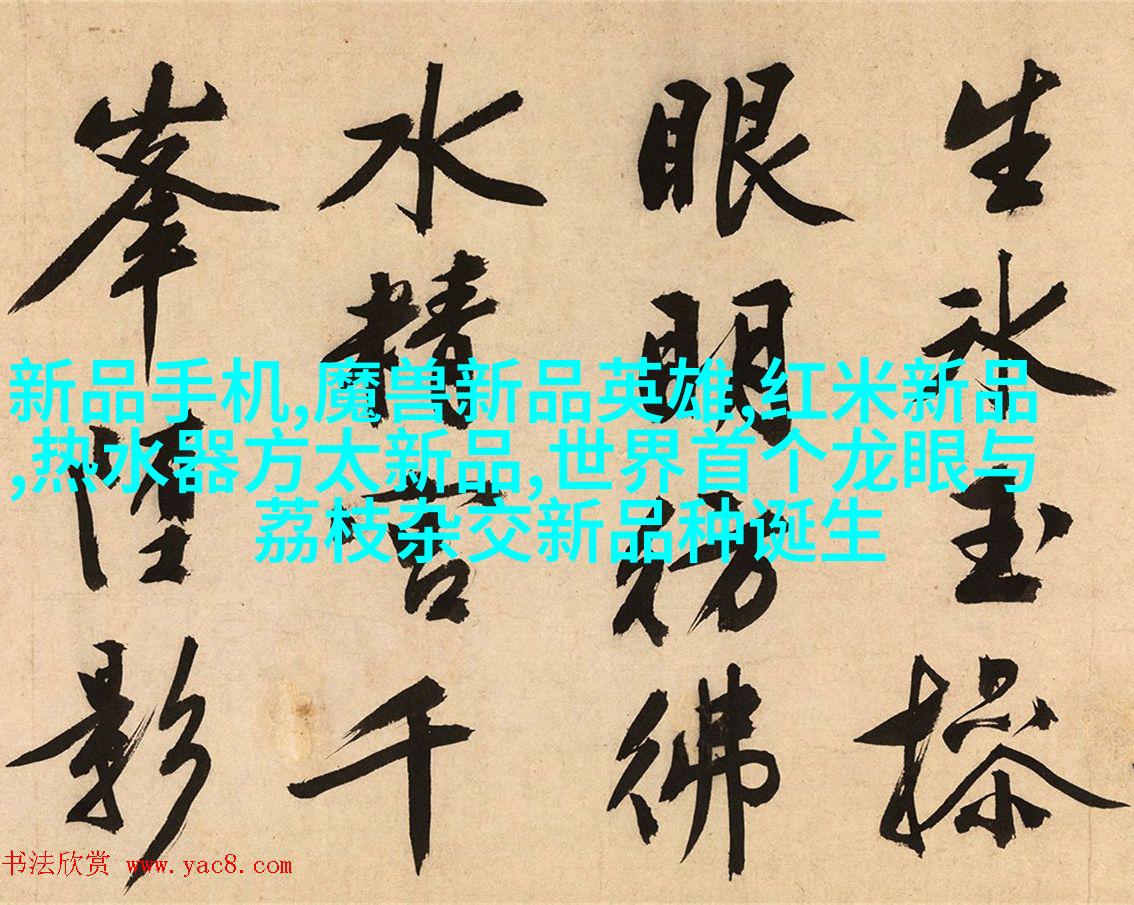 生冰玉操
眼明彷彿
水精宫千
峯堕影
新品手机,魔兽新品英雄,红米新品
,热水器方太新品,世界首个龙眼与
荔枝杂交新品种诞生
书法欣赏 www.yac8.com